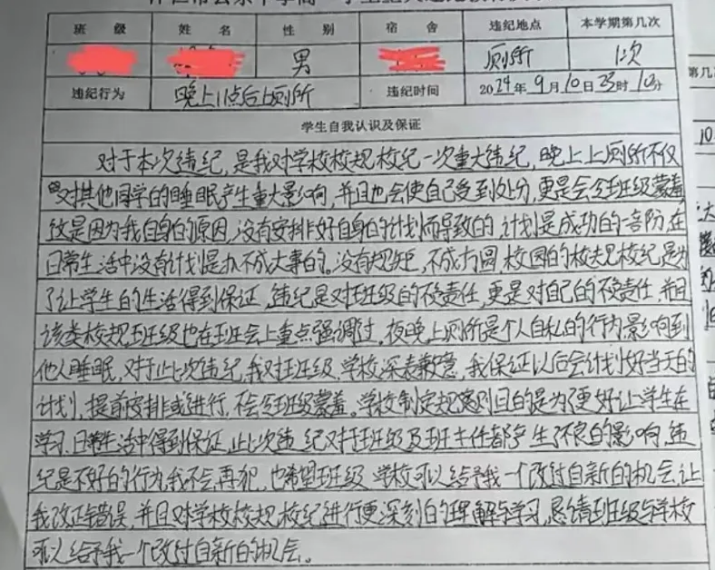 班 级 姓 名 性 别 宿 舍 违纪地点 本学期第几次
男 厕所 1次
违纪行为 晚上11点后上厕所 违纪时间 2024年9月10日23时10分
学生自我认识及保证
对于本次违纪，是我对学校校规校纪一次重大违纪，晚上上厕所不仅
对其他同学的睡眠产生重大影响，并且也会使自己受到处分，更是会令班级蒙羞
这是因为我自身的原因，没有安排好自身的计划而导致的，计划是成功的一部份，在
日常生活中没有计划是办不成大事的。没有规矩，不成方圆，校园的校规校纪是为
了让学生的生活得到保证，违纪是对班级的不负责任，更是对自己的不负责任，并且
该类校规班级也在班会上重点强调过，夜晚上厕所是个人自私的行为，影响到
他人睡眠，对于此次违纪，我对班级、学校深表歉意，我保证以后会计划好当天的
计划，提前安排或进行，不会令班级蒙羞。学校制定规章则目的是为了更好让学生在
学习、日常生活中得到保证，此次违纪对于班级及班主任都产生了不良的影响，违
纪是不好的行为，我不会再犯，也希望班级、学校可以给予我一个改过自新的机会，让
我改正错误，并且对学校校规校纪进行更深刻的理解与学习，恳请班级与学校
可以给予我一个改过自新的机会。
第几
10